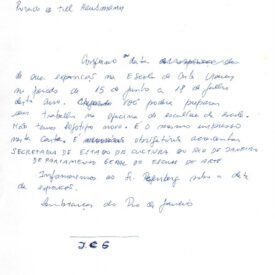 Confirmo a data
de sua exposição na Escola de Artes Visuais
no período de 15 de junho a 18 de julho
deste ano. você poderá preparar
seu trabalho na oficina de escultura da escola.
Não temos logotipo novo. É o mesmo impresso
nesta carta. É obrigatório acrescentar
SECRETARIA DE ESTADO DE CULTURA DO RIO DE JANEIRO
DEPARTAMENTO GERAL DE ESCOLAS DE ARTE
Informaremos ao Sr. sobre a data
da exposição.
Lembranças do Rio de Janeiro